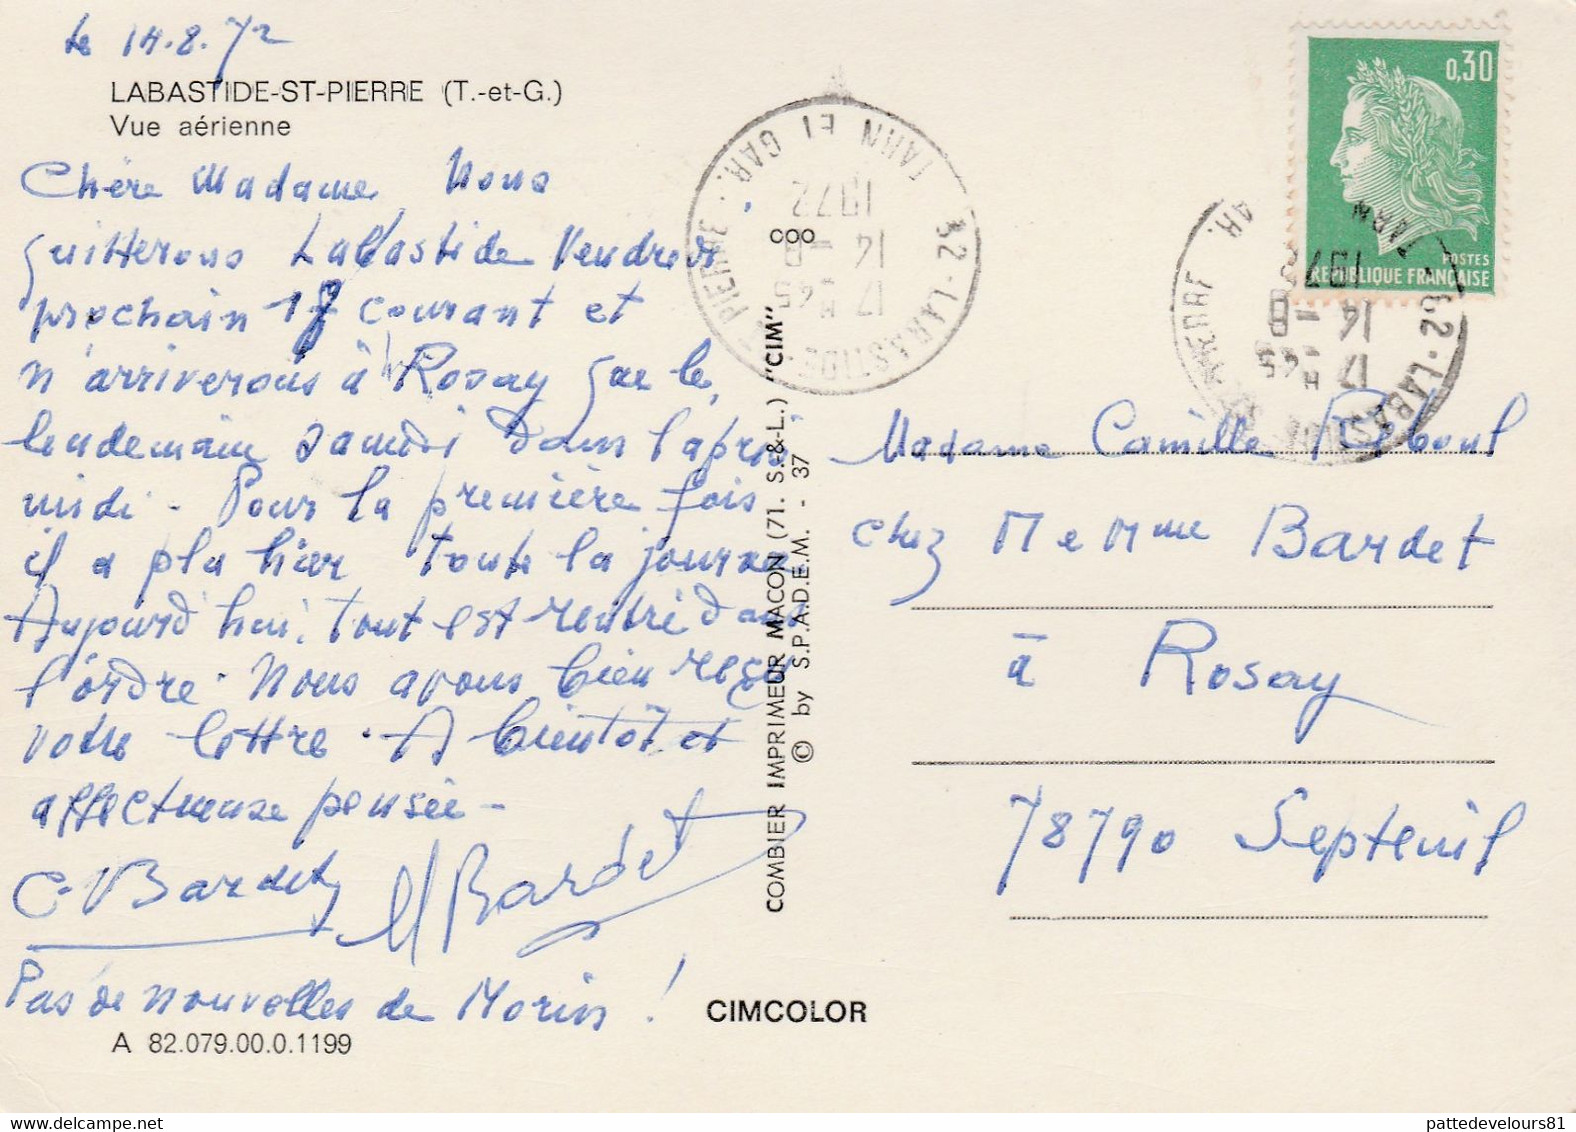 Le 14.8.72
LABASTIDE-ST-PIERRE (T.-et-G.)
Vue aérienne
Chère Madame Nous
quitterons Labastide Vendredi
prochain 18 courant et
n'arriverons à Rosay que le
lendemain samedi dans l'après
midi. Pour la première fois
il a plu hier toute la journée
Aujourd'hui, tout est rentré dans
l'ordre. Nous avons bien reçu
votre lettre. A bientôt et
affectueuse pensée -
C. Bardet Bardet
Pas de nouvelles de Morin !
A 82.079.00.0.1199
COMBIER IMPRIMEUR MACON (71. S.-&-L.) "CIM" COO
© by S.P.A.D.E.M. - 37
CIMCOLOR
82-LABASTIDE-ST PIERRE. TARN ET GAR.
17 H 45
14 - 8
1972
0,30
POSTES
REPUBLIQUE FRANÇAISE
82-LABASTIDE ST PIERRE TARN AR.
17 H 45
14 - 8
197
Madame Camille Reboul
chez M e Mme Bardet
à Rosay
78790 Septeuil
pattedevelours81